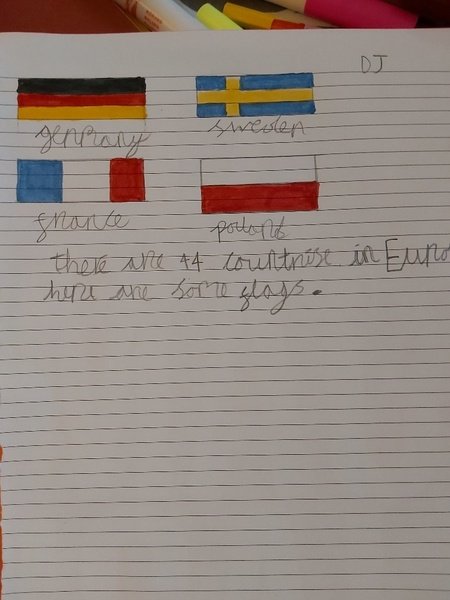 DJ
genmany
sweden
france
poland
there are 44 countrise in Euro
here are some flags.